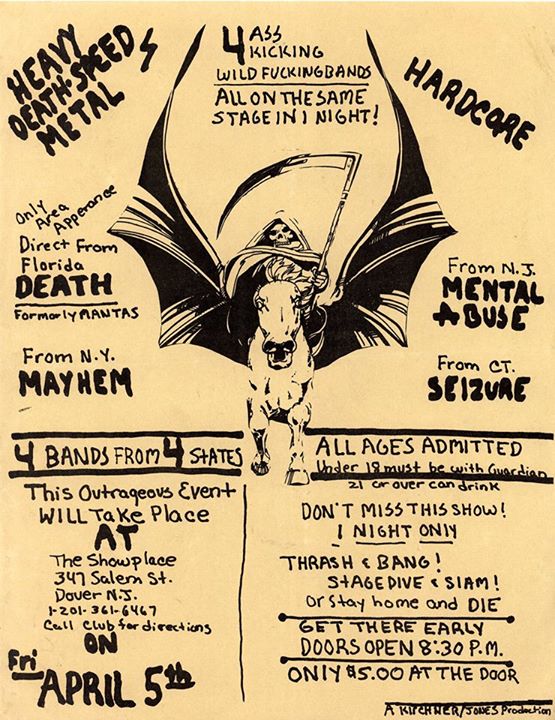 HEAVY
DEATH-SPEED
METAL
4 ASS
KICKING
WILD FUCKING BANDS
ALL ON THE SAME
STAGE IN 1 NIGHT!
HARDCORE
Only
Area
Apperance
Direct From
Florida
DEATH
Formorly MANTAS
From N.Y.
MAYHEM
From N.J.
MENTAL
ABUSE
From CT.
SEIZURE
4 BANDS FROM 4 STATES
This Outrageous Event
WILL Take Place
AT
The Showplace
347 Salem St.
Dover N.J.
1-201-361-6467
Call Club for directions
ON
Fri
APRIL 5th
ALL AGES ADMITTED
Under 18 must be with Guardian
21 or over can drink
DON'T MISS THIS SHOW!
1 NIGHT ONLY
THRASH & BANG!
STAGEDIVE & SLAM!
Or Stay home and DIE
GET THERE EARLY
DOORS OPEN 8:30 P.M.
ONLY $5.00 AT THE DOOR
A KIRCHNER/JONES Production